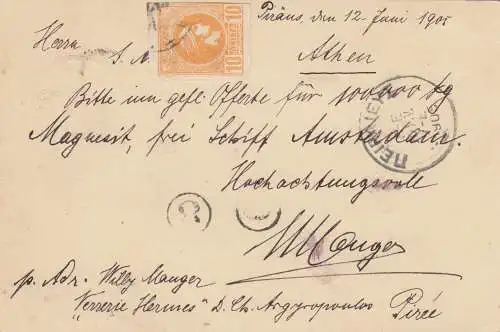 Piräus, den 12. Juni 1901
Herrn
S. A
Athen
10 10
Bitte um gefl. Offerte für 100000 Kg
Magnesit, frei Schiff Amsterdam.
Hochachtungsvoll
WManger
p. Adr. Willy Manger
"Verrerie Hermes" D. Ch. Argyropoulos
Pirée